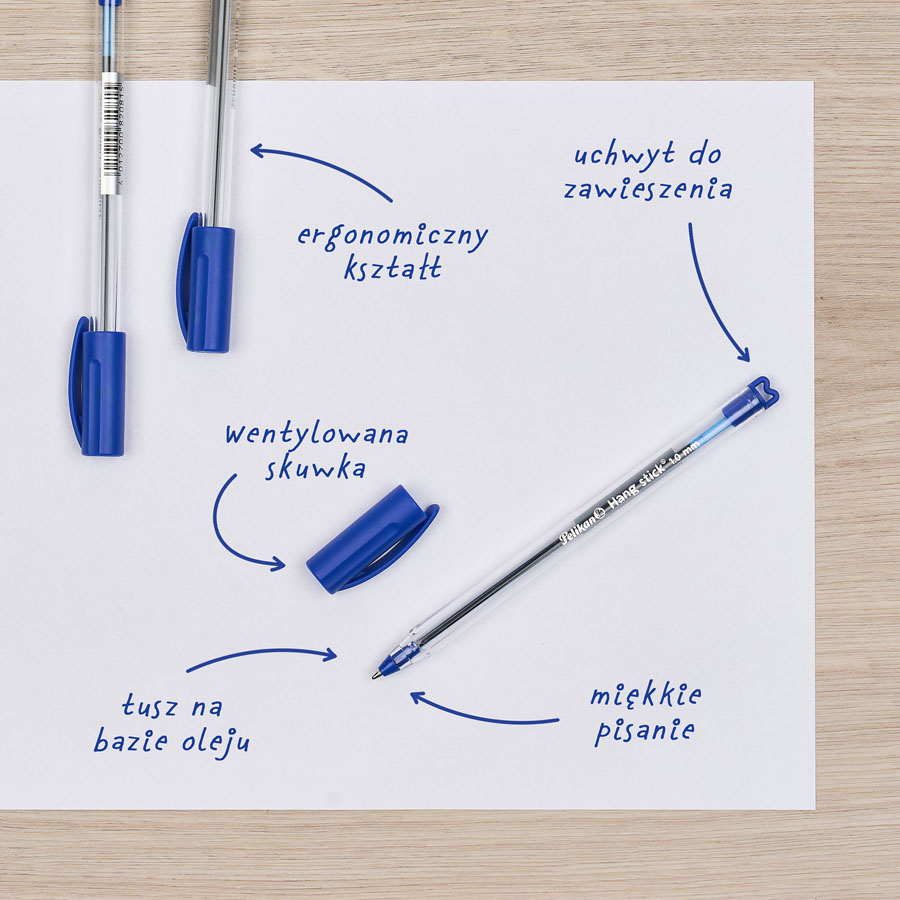 uchwyt do
zawieszenia
ergonomiczny
kształt
wentylowana
skuwka
Pelikan Hang stick® 1.0 mm
tusz na
bazie oleju
miękkie
pisanie